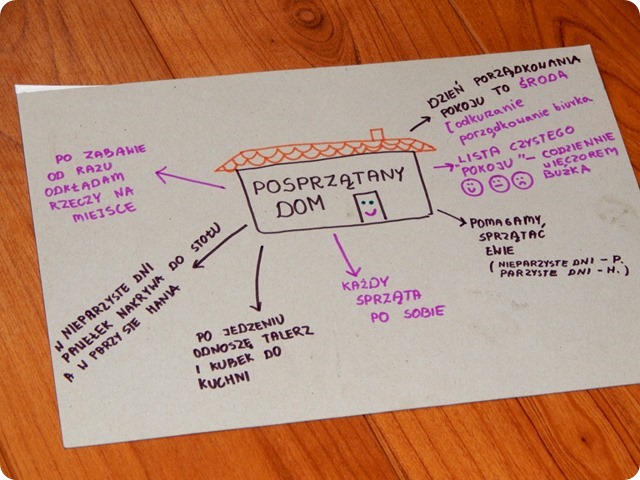 POSPRZĄTANY
DOM
DZIEŃ PORZĄDKOWANIA
POKOJU TO ŚRODA
[odkurzanie
porządkowanie biurka
"LISTA CZYSTEGO
POKOJU" - CODZIENNIE
WIECZOREM
BUŹKA
POMAGAMY,
SPRZĄTAĆ
EWIE
(NIEPARZYSTE DNI - P.
PARZYSTE DNI - H.)
KAŻDY
SPRZĄTA
PO SOBIE
PO JEDZENIU
ODNOSZĘ TALERZ
I KUBEK DO
KUCHNI
W NIEPARZYSTE DNI
PAWEŁEK NAKRYWA DO STOŁU
A W PARZYSTE HANIA
PO ZABAWIE
OD RAZU
ODKŁADAM
RZECZY NA
MIEJSCE